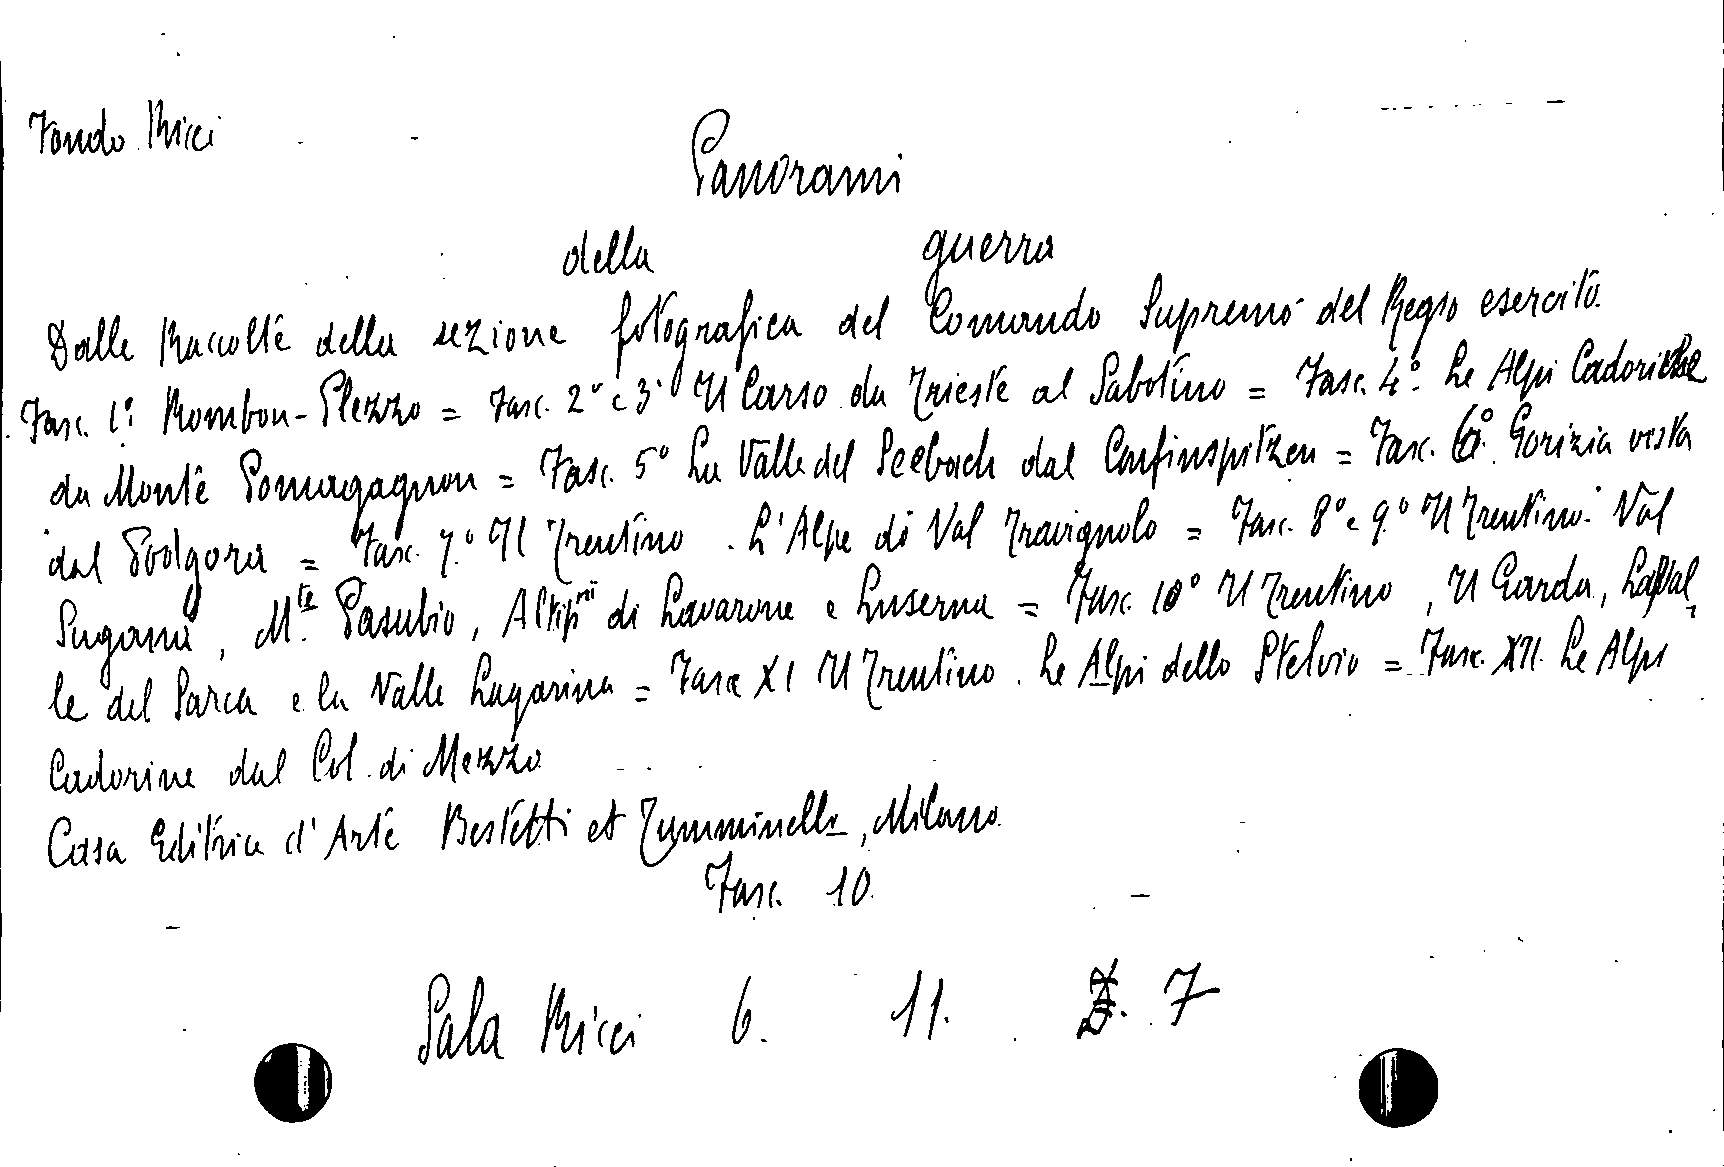 Fondo Ricci
Panorami
della guerra
Dalle Raccolte della sezione fotografica del Comando Supremo del Regio esercito.
Fasc. 1º Rombon-Plezzo = Fasc. 2º e 3º Il Carso da Trieste al Sabotino = Fasc. 4º Le Alpi Cadoriche
da Monte Pomagagnon = Fasc. 5º La Valle del Seebach dal Confinspitzen = Fasc. 6º Gorizia vista
dal Podgora = Fasc. 7º Il Trentino. L'Alpe di Val Travignolo = Fasc. 8º e 9º Il Trentino. Val
Sugana, M.te Pasubio, Altip.ni di Lavarone e Luserna = Fasc. 10º Il Trentino, Il Garda, La Val
le del Sarca e la Valle Lagarina = Fasc XI Il Trentino. Le Alpi dello Stelvio = Fasc. XII. Le Alpi
Cadorine dal Col di Mezzo
Casa Editrice d'Arte Bestetti et Tumminelli, Milano
Fasc. 10.
Sala Ricci 6. 11. 7